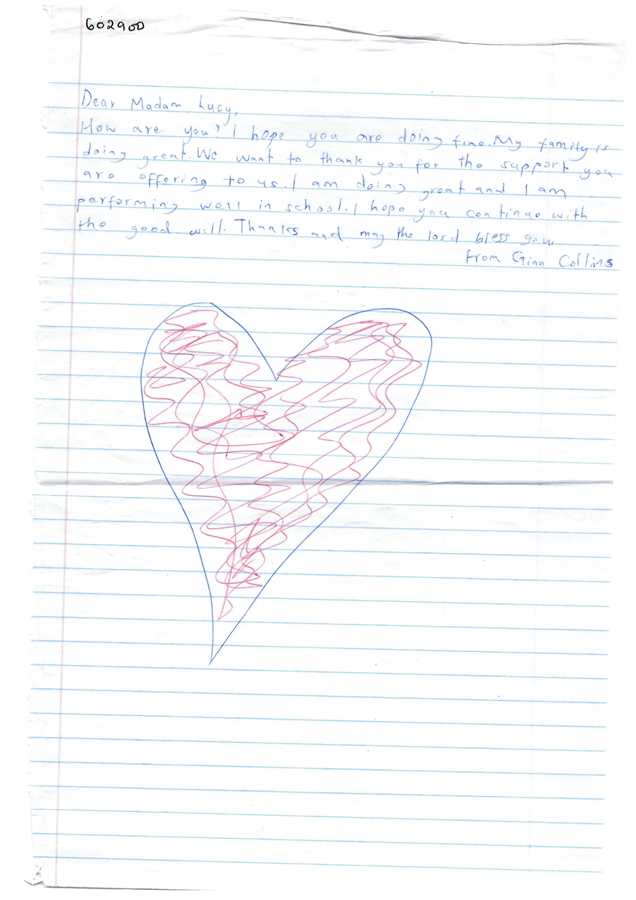 602900
Dear Madam Lucy,
How are you? I hope you are doing fine. My family is
doing great. We want to thank you for the support you
are offering to us. I am doing great and I am
performing well in school. I hope you continue with
the good will. Thanks and may the lord bless you
From Ginn Collins